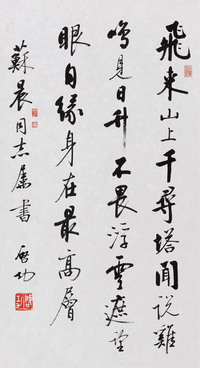 飛来山上千尋塔聞說雞
鳴見日升不畏浮雲遮望
眼自緣身在最高層
蘇晨同志属書 啓功